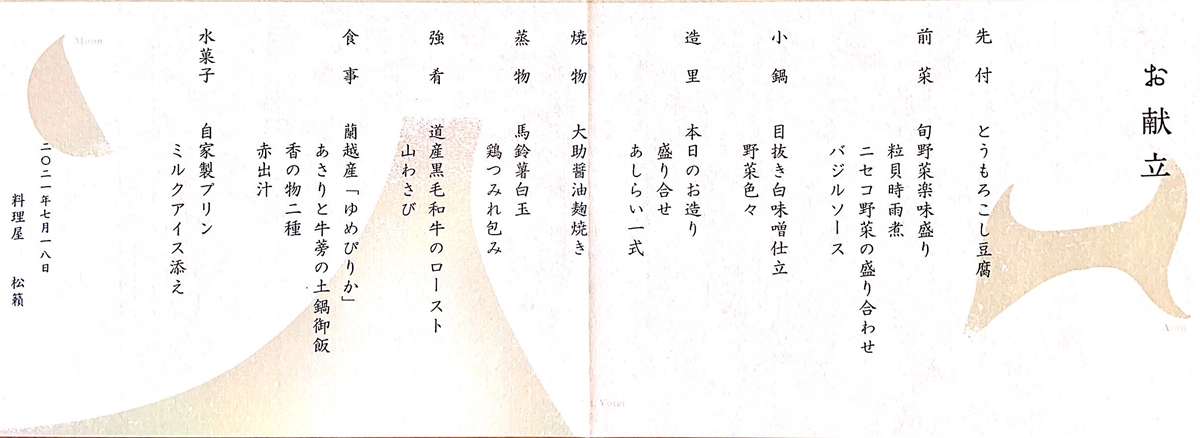 お献立
先付　とうもろこし豆腐
前菜　旬野菜楽味盛り
粒貝時雨煮
ニセコ野菜の盛り合わせ
バジルソース
小鍋　目抜き白味噌仕立
野菜色々
造里　本日のお造り
盛り合せ
あしらい一式
焼物　大助醤油麹焼き
蒸物　馬鈴薯白玉
鶏つみれ包み
強肴　道産黒毛和牛のロースト
山わさび
食事　蘭越産「ゆめぴりか」
あさりと牛蒡の土鍋御飯
香の物二種
赤出汁
水菓子　自家製プリン
ミルクアイス添え
二〇二一年七月一八日
料理屋　松籟
Moon
Yotei